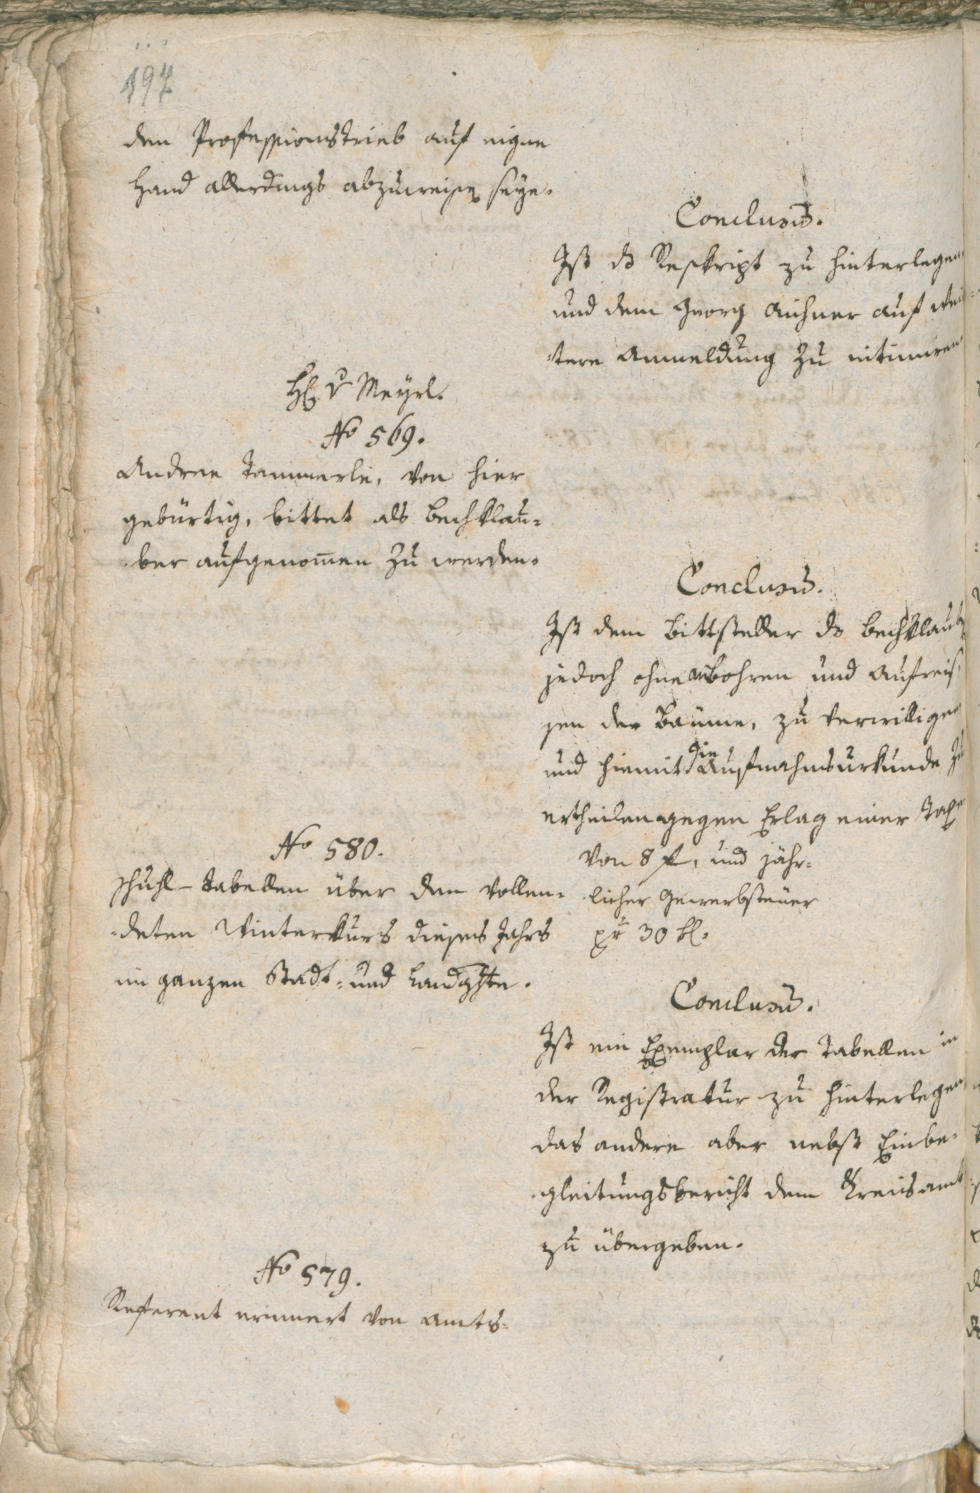 197
den Professionstrieb auf eigne
Hand allerdings abzuweisen seye.
Conclusum.
Ist das Reskript zu hinterlegen
und dem Georg Aichner auf wei
tere Anmeldung zu intimiren
H. v Meyrl.
No 569.
Andree Tammerle, von hier
gebürtig, bittet als Pechklau-
ber aufgenom̅en zu werden.
Conclusum.
Ist dem Bittsteller das Pechklaub
jedoch ohne anbohren und Aufreis-
sen der Bäume, zu verwilligen
und hiemit die Aufnahmsurkunde zu
ertheilen gegen Erlag einer Taxe
von 8 f, und jähr-
licher Gewerbsteuer
pr 30 kr.
No 580.
Schuhl-Tabellen über den vollen-
deten Winterkurs dieses Jahrs
im ganzen Stadt- und Landgchte.
Conclusum.
Ist ein Exemplar der Tabellen in
der Registratur zu hinterlegen
das andere aber nebst Einbe-
gleitungsbericht dem Kreisamt
zu übergeben.
No 579.
Referent erinnert von Amts-